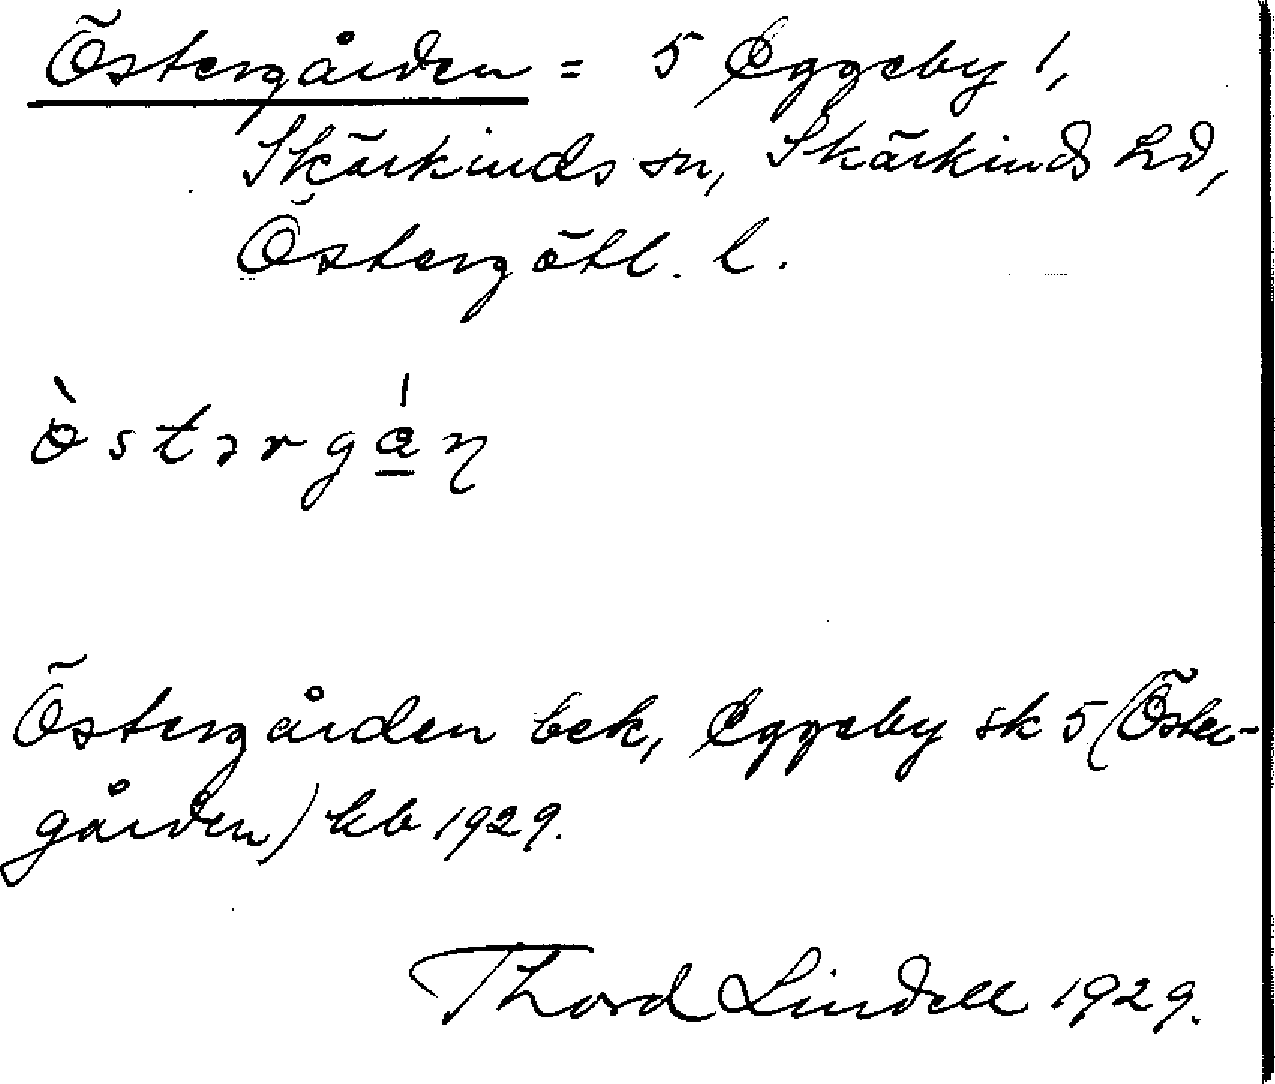 Östergården = 5 Eggeby 1,
Skärkinds sn, Skärkinds hd,
Östergötl. l.
ö̀stərgá̲ŋ
Östergården bek, Eggeby sk 5 (Öster-
gården) kb 1929.
Thord Lindell 1929.